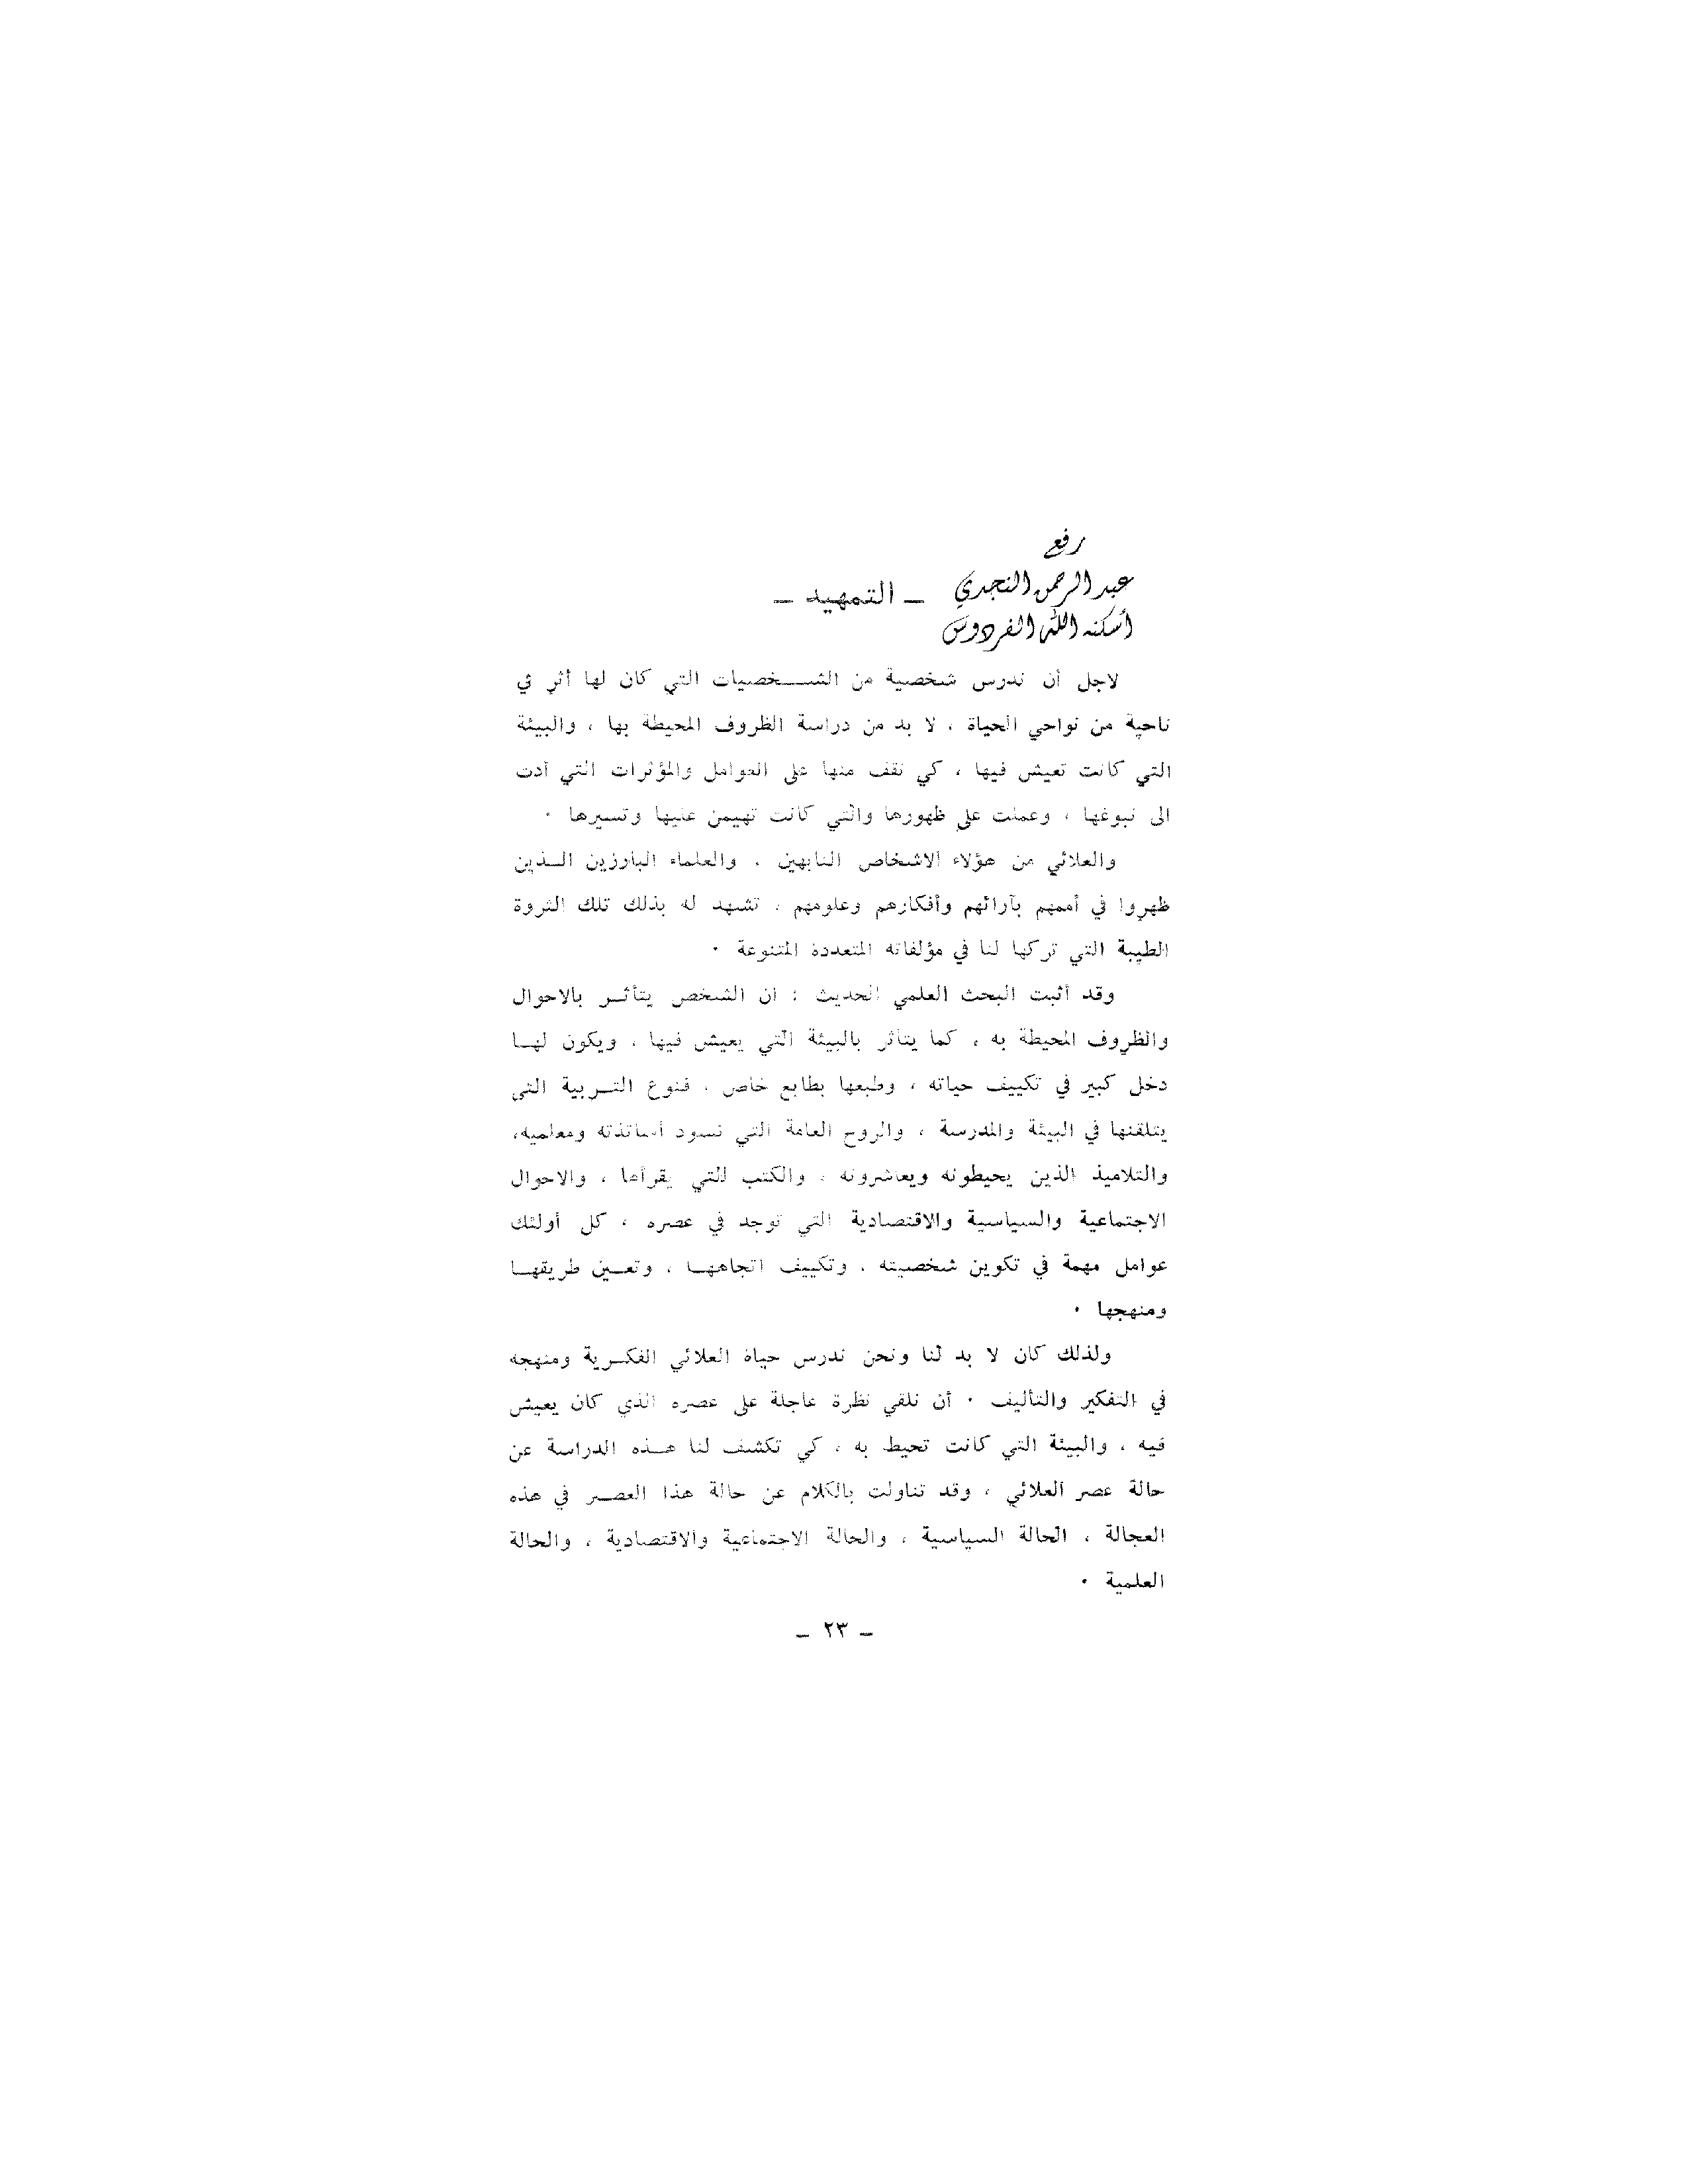 رفع
عبد الرحمن النجدي
أسكنه الله الفردوس
ـ التمهيد ـ
لاجل أن ندرس شخصية من الشـــخصيات التي كان لها أثر في
ناحية من نواحي الحياة ، لا بد من دراسة الظروف المحيطة بها ، والبيئة
التي كانت تعيش فيها ، كي نقف منها على العوامل والمؤثرات التي أدت
الى نبوغها ، وعملت على ظهورها والتي كانت تهيمن عليها وتسيرها ٠
والعلائي من هؤلاء الاشخاص النابهين ، والعلماء البارزين الـذين
ظهروا في أممهم بآرائهم وأفكارهم وعلومهم ، تشهد له بذلك تلك الثروة
الطيبة التي تركها لنا في مؤلفاته المتعددة المتنوعة ٠
وقد أثبت البحث العلمي الحديث : ان الشخص يتأثـر بالاحوال
والظروف المحيطة به ، كما يتأثر بالبيئة التي يعيش فيها ، ويكون لهـا
دخل كبير في تكييف حياته ، وطبعها بطابع خاص ، فنوع التـربية التي
يتلقنها في البيئة والمدرسة ، والروح العامة التي تسود أساتذته ومعلميه،
والتلاميذ الذين يحيطونه ويعاشرونه ، والكتب التي يقرأها ، والاحوال
الاجتماعية والسياسية والاقتصادية التي توجد في عصره ، كل أولئك
عوامل مهمة في تكوين شخصيته ، وتكييف اتجاههـا ، وتعـين طريقهـا
ومنهجها ٠
ولذلك كان لا بد لنا ونحن ندرس حياة العلائي الفكـرية ومنهجه
في التفكير والتأليف ٠ أن نلقي نظرة عاجلة على عصره الذي كان يعيش
فيه ، والبيئة التي كانت تحيط به ، كي تكشف لنا هـذه الدراسة عن
حالة عصر العلائي ، وقد تناولت بالكلام عن حالة هذا العصـر في هذه
العجالة ، الحالة السياسية ، والحالة الاجتماعية والاقتصادية ، والحالة
العلمية ٠
ـ ٢٣ ـ